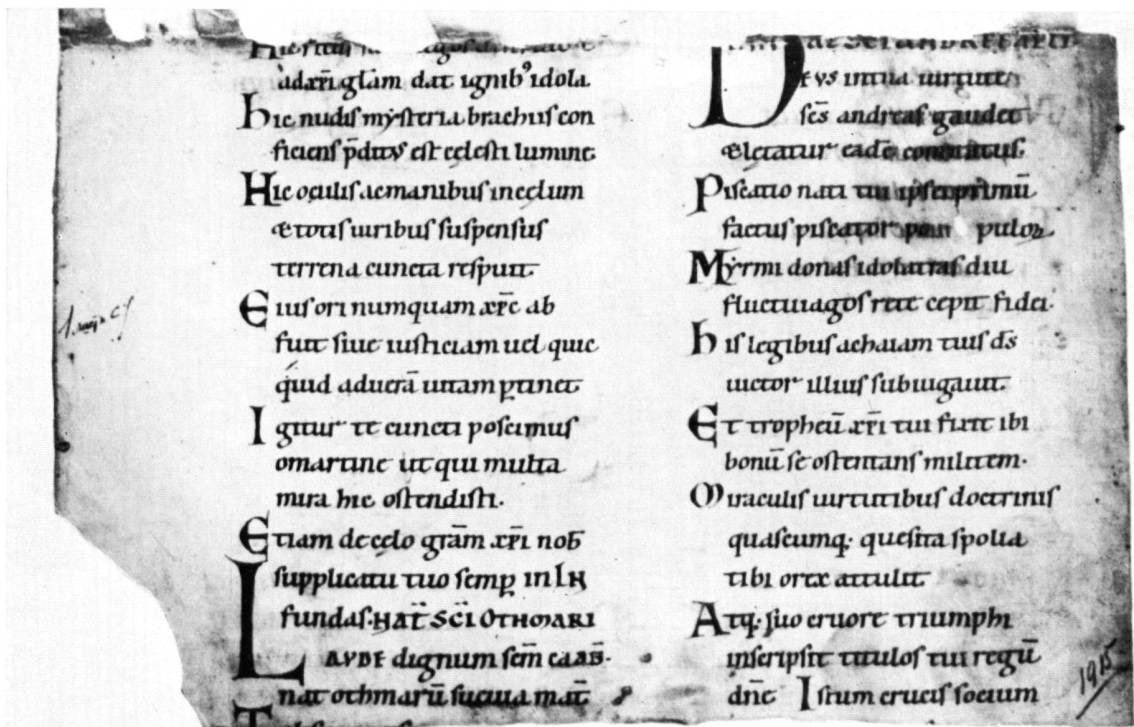 ad xp̄i gl̄am dat ignib⁹ idola
hic nudis mysteria brachiis con
ficiens p̄ditus est cęlesti lumine
Hic oculis ac manibus in cęlum
& totis uiribus suspensus
terrena cuncta respuit.
Eius ori numquam xp̄c ab
fuit siue iusticiam uel quic
quid ad uerā uitam ꝑtinet.
Igitur te cuncti poscimus
o martine ut qui multa
mira hic ostendisti.
Etiam de cęlo grām xp̄i nob̄
supplicatu tuo semꝑ in
fundas. NAT̄ SC̄I OTHMARI
LAVDE dignum
nat othmarū sueuia mat̄
SCI ANDREAE
Deus in tua uirtute
sc̄s andreas gaudet
& lętatur eadē comitatus.
Piscatio nati tui ipse primū
factus piscator populoꝝ
Myrmidonas idolatras diu
fluctiuagos rete cepit fidei.
his legibus achaiam tuis ds̄
uictor illius subiugauit.
Et tropheū xp̄i tui fixit ibi
bonū se ostentans militem.
Miraculis uirtutibus doctrinis
quascumq· quesita spolia
tibi o rex attulit.
Atq· suo cruore triumphi
inscripsit titulos tui regū
dn̄e Istum crucis socium
1915